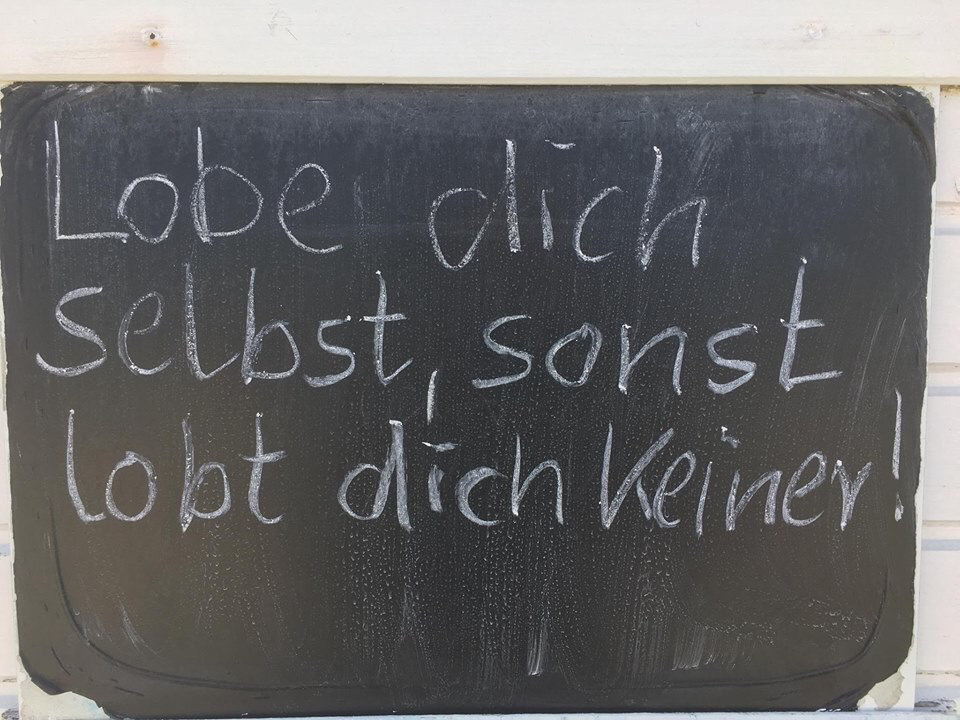 Lobe dich
selbst, sonst
lobt dich keiner!